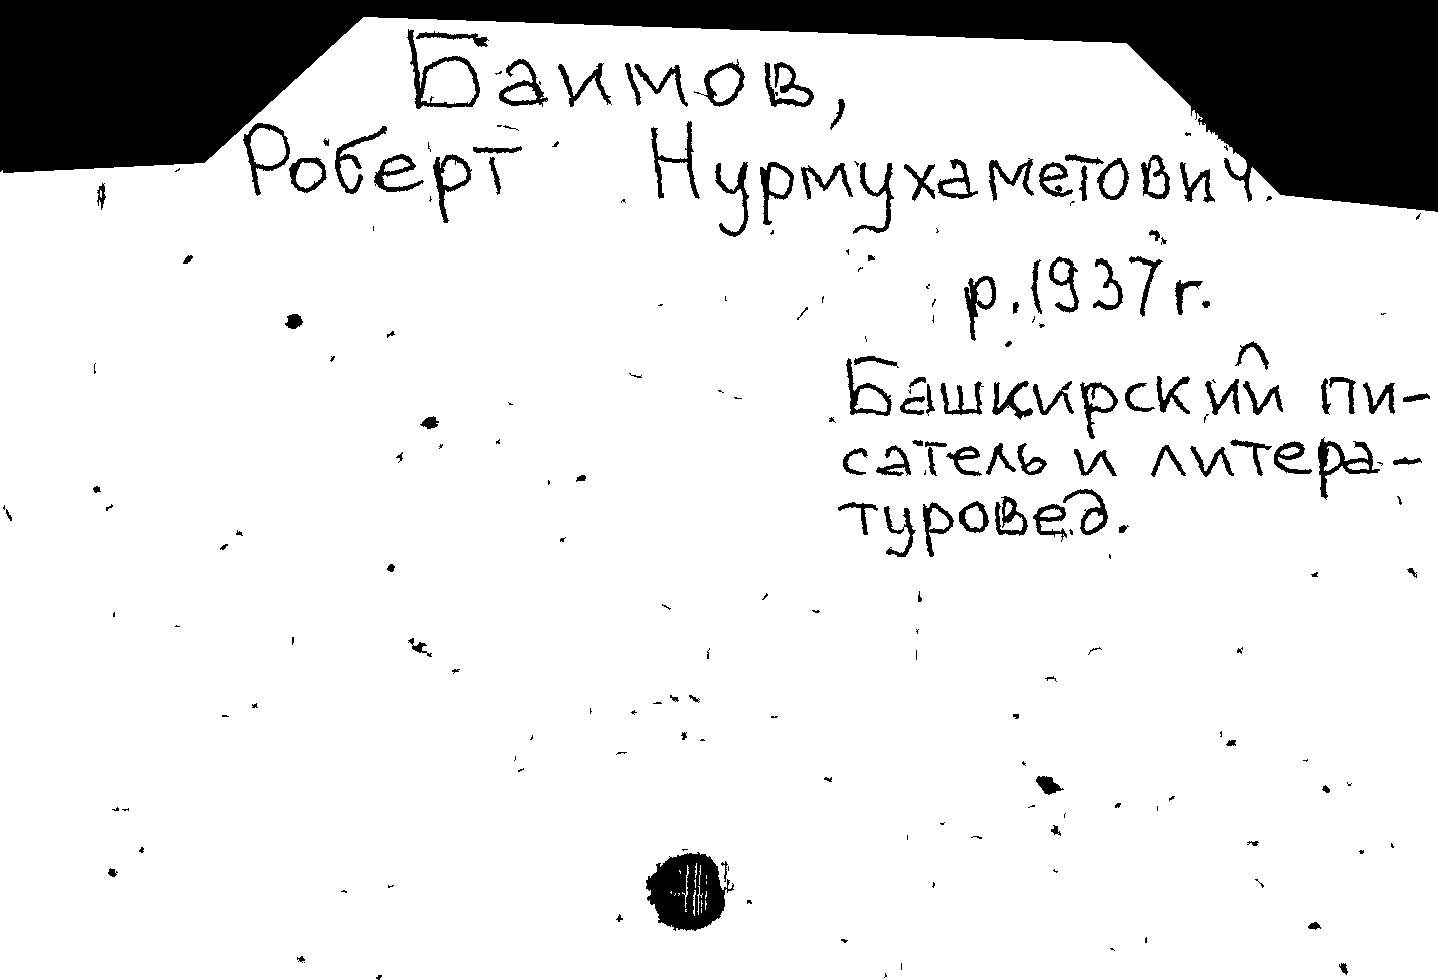 Баимов,
Роберт Нурмухаметович.
р. 1937 г.
Башкирский пи-
сатель и литера-
туровед.